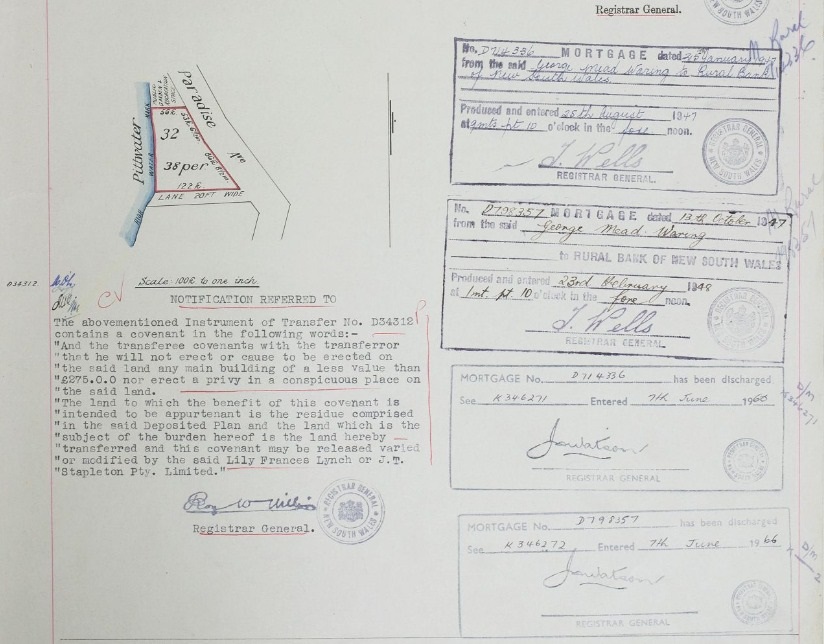 Registrar General.
Pittwater
Paradise
Ave
32
38per
LANE 20FT WIDE
Scale:-100ft to one inch
D34312.
CV
NOTIFICATION REFERRED TO
The abovementioned Instrument of Transfer No. D34312
contains a covenant in the following words:-
"And the transferee covenants with the transferror
"that he will not erect or cause to be erected on
"the said land any main building of a less value than
"£275.0.0 nor erect a privy in a conspicuous place on
"the said land.
"The land to which the benefit of this covenant is
"intended to be appurtenant is the residue comprised
"in the said Deposited Plan and the land which is the
"subject of the burden hereof is the land hereby
"transferred and this covenant may be released varied
"or modified by the said Lily Frances Lynch or J.T.
"Stapleton Pty. Limited."
Registrar General.
REGISTRAR GENERAL NEW SOUTH WALES
No. D714336 MORTGAGE dated January
from the said George Mead Waring to Rural Bank
of New South Wales
Produced and entered 25th August 1947
at 2 mts pt 10 o'clock in the fore noon.
J. Wells
REGISTRAR GENERAL.
REGISTRAR GENERAL NEW SOUTH WALES
No. D798357 MORTGAGE dated 13th October 1947
from the said George Mead Waring
to RURAL BANK OF NEW SOUTH WALES
Produced and entered 23rd February 1948
at 1 mt. pt. 10 o'clock in the fore noon.
J. Wells
REGISTRAR GENERAL.
MORTGAGE No. D714336 has been discharged
See K346271 Entered 7th June 1966
Jawatson
REGISTRAR GENERAL
MORTGAGE No. D798357 has been discharged
See K346272 Entered 7th June 1966
Jawatson
REGISTRAR GENERAL